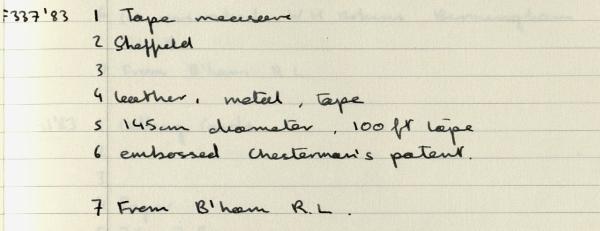 F337'83 1 Tape measure
2 Sheffield
3
4 leather, metal, tape
5 145cm diameter, 100 ft tape
6 embossed Chesterman's patent.
7 From B'ham R.L.